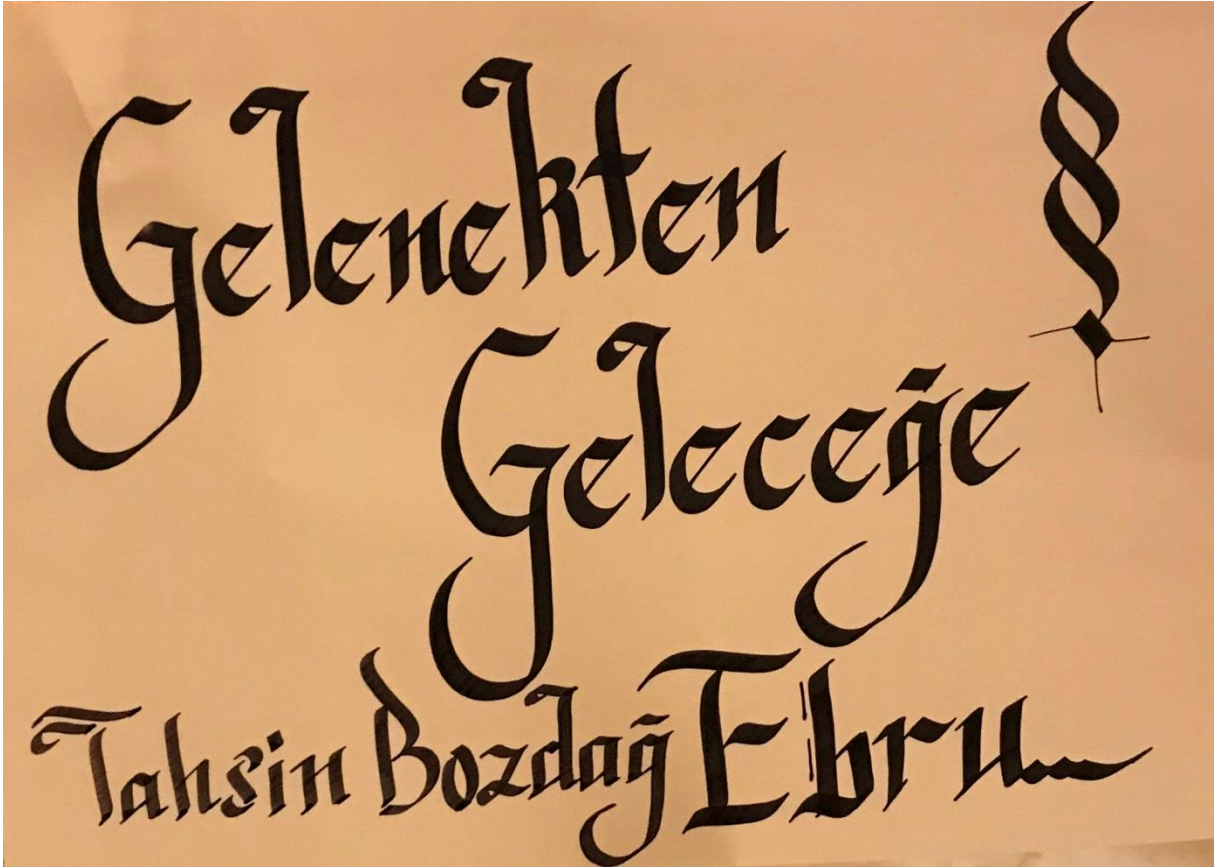 Gelenekten
Geleceğe
Tahsin Bozdağ Ebru...